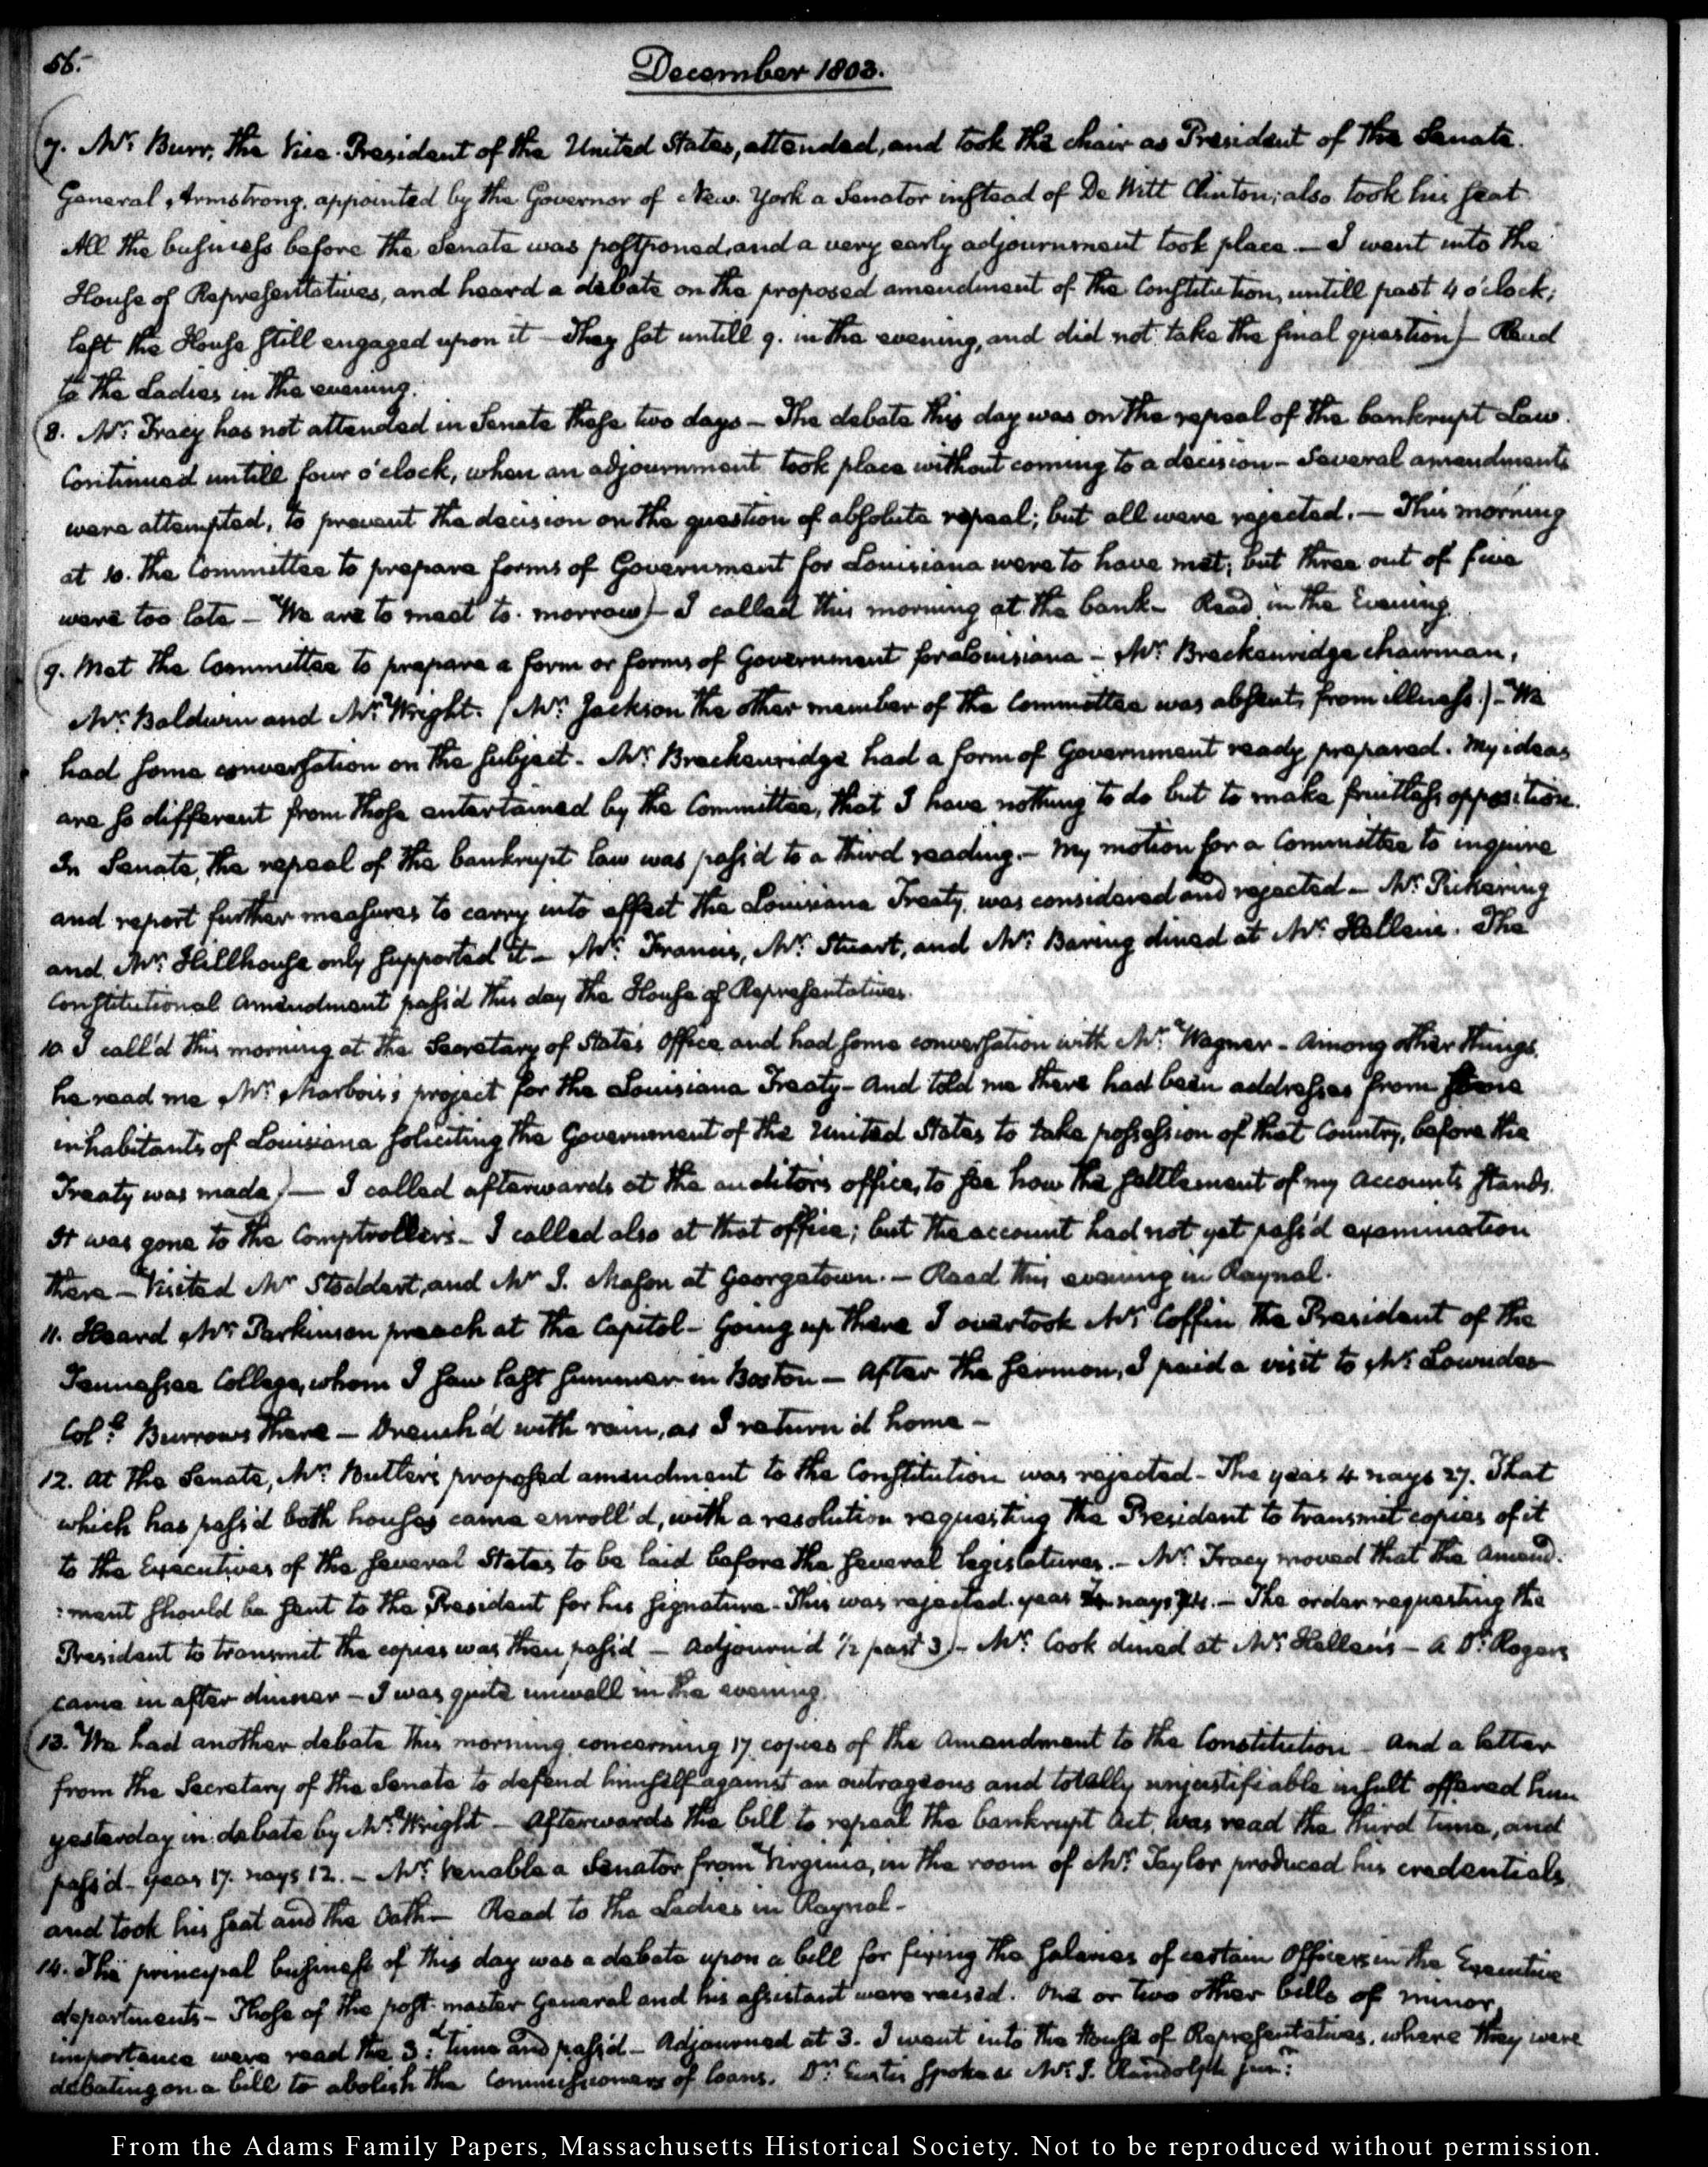 56.
December 1803.
7. Mr. Burr, the Vice-President of the United States, attended, and took the chair as President of the Senate.
General Armstrong, appointed by the Governor of New-York a Senator instead of De Witt Clinton; also took his seat
All the business before the Senate was postponed, and a very early adjournment took place — I went into the
House of Representatives, and heard a debate on the proposed amendment of the Constitution, untill past 4 o'clock;
left the House still engaged upon it — They sat untill 9. in the evening, and did not take the final question) — Read
to the Ladies in the evening.
8. Mr. Tracy has not attended in Senate these two days — The debate this day was on the repeal of the bankrupt Law.
Continued untill four o'clock, when an adjournment took place without coming to a decision — Several amendments
were attempted, to prevent the decision on the question of absolute repeal; but all were rejected. — This morning
at 10. the Committee to prepare forms of Government for Louisiana were to have met; but three out of five
were too late — We are to meet to-morrow) — I called this morning at the bank — Read in the Evening.
9. Met the Committee to prepare a form or forms of Government for Louisiana — Mr. Breckenridge chairman,
Mr. Baldwin and Mr. Wright. (Mr. Jackson the other member of the Committee was absent, from illness.) — We
had some conversation on the subject. Mr. Breckenridge had a form of Government ready prepared. My ideas
are so different from those entertained by the Committee, that I have nothing to do but to make fruitless opposition.
In Senate, the repeal of the bankrupt law was pass'd to a third reading. — My motion for a Committee to inquire
and report further measures to carry into effect the Louisiana Treaty, was considered and rejected — Mr. Pickering
and Mr. Hillhouse only supported it — Mr. Francis, Mr. Stuart, and Mr. Baring dined at Mr. Hellen's. The
Constitutional amendment pass'd this day the House of Representatives.
10. I call'd this morning at the Secretary of State's Office and had some conversation with Mr. Wagner — Among other things,
he read me Mr. Marbois's project for the Louisiana Treaty — And told me there had been addresses from some
inhabitants of Louisiana soliciting the Government of the United States to take possession of that Country, before the
Treaty was made.) — I called afterwards at the auditor's office, to see how the settlement of my accounts stands.
It was gone to the Comptroller's — I called also at that office; but the account had not yet pass'd examination
there — Visited Mr. Stoddert, and Mr. J. Mason at Georgetown. — Read this evening in Raynal.
11. Heard Mr. Parkinson preach at the Capitol — Going up there I overtook Mr. Coffin, the President of the
Tennessee College, whom I saw last summer in Boston — After the sermon, I paid a visit to Mr. Lowndes
Coll. Burrows there — Drench'd with rain, as I return'd home —
12. At the Senate, Mr. Butler's proposed amendment to the Constitution was rejected — The yeas 4 nays 27. That
which has pass'd both houses came enroll'd, with a resolution requesting the President to transmit copies of it
to the Executives of the several States to be laid before the several legislatures. — Mr. Tracy moved that the amend-
:ment should be sent to the President for his signature. This was rejected. yeas 7. nays 24. — The order requesting the
President to transmit the copies was then pass'd — Adjourn'd ½ past 3) — Mr. Cook dined at Mr. Hellen's — A Dr. Rogers
came in after dinner — I was quite unwell in the evening.
13. We had another debate this morning concerning 17 copies of the Amendment to the Constitution — And a letter
from the Secretary of the Senate to defend himself against an outrageous and totally unjustifiable insult offered him
yesterday in debate by Mr. Wright — Afterwards the bill to repeal the bankrupt Act, was read the third time, and
pass'd — yeas 17. nays 12. — Mr. Venable a Senator from Virginia, in the room of Mr. Taylor produced his credentials
and took his seat and the Oath — Read to the Ladies in Raynal —
14. The principal business of this day was a debate upon a bill for fixing the salaries of certain Officers in the Executive
departments — Those of the post-master General and his assistant were raised. One or two other bills of minor
importance were read the 3:d time and pass'd — Adjourned at 3. I went into the House of Representatives, where they were
debating on a bill to abolish the Commissioners of loans. Dr. Eustis spoke & Mr. J. Randolph junr:
From the Adams Family Papers, Massachusetts Historical Society. Not to be reproduced without permission.